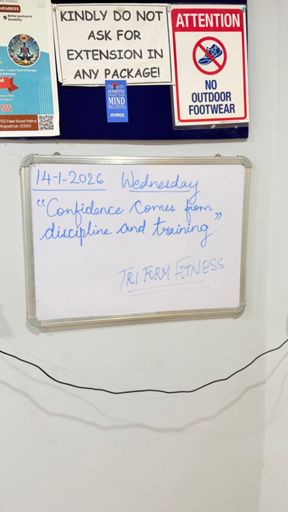 MEMBERS
KINDLY DO NOT
ASK FOR
EXTENSION IN
ANY PACKAGE!
ATTENTION
NO
OUTDOOR
FOOTWEAR
THE BODY
ACHIEVES
WHAT THE
MIND
BELIEVES
14-1-2026 Wednesday
"Confidence comes from
discipline and training."
TRI FORM FITNESS